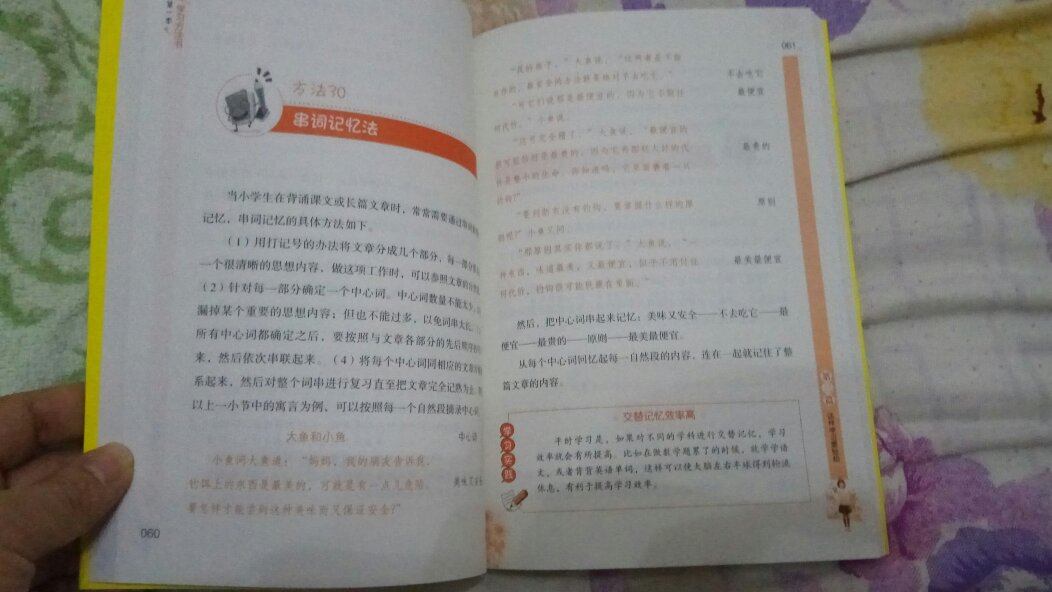 方法30
串词记忆法
当小学生在背诵课文或长篇文章时，常常需要通过串词
记忆，串词记忆的具体方法如下。
（1）用打记号的办法将文章分成几个部分，每一部分
一个很清晰的思想内容，做这项工作时，可以参照文章的
（2）针对每一部分确定一个中心词。中心词数量不能太少，
漏掉某个重要的思想内容；但也不能过多，以免词串太长。
所有中心词都确定之后，要按照与文章各部分的先后顺序
来，然后依次串联起来。（4）将每个中心词同相应的文章
系起来，然后对整个词串进行复习直至把文章完全记熟为止。
以上一小节中的寓言为例、可以按照每一个自然段摘录中心词
大鱼和小鱼 中心词
小鱼问大鱼道：“妈妈，我的朋友告诉我，
钓饵上的东西是最美的，可就是有一点儿危险，
要怎样才能尝到这种美味而又保证安全？” 美味又安
060
061
“我的孩子，”大鱼说，“这两者是不能
并存的，最安全的办法就是绝对不去吃它。” 不去吃它
“可它们说那是最便宜的，因为它不需任 最便宜
何代价。”小鱼说。
“这可完全错了，”大鱼说，“最便宜的
很可能恰好是最贵的，因为它希图别人付的代 最贵的
价是整个的生命。你知道吗，它里面裹着一只
钓钩？”
“要判断有没有钓钩，要掌握什么样的原 原则
则呢？”小鱼又问。
“那原则其实你都说了。”大鱼说，“一
种东西，味道最美，又最便宜，似乎不用付任 最美最便宜
何代价，钓钩很可能就藏在里面。”
然后，把中心词串起来记忆：美味又安全——不去吃它——最
便宜——最贵的——原则——最美最便宜。
从每个中心词回忆起每一自然段的内容，连在一起就记住了整
篇文章的内容。
学习实践
交替记忆效率高
平时学习是，如果对不同的学科进行交替记忆，学习
效率就会有所提高。比如在做数学题累了的时候，就学学语
文，或者背背英语单词，这样可以使大脑左右半球得到轮流
休息，有利于提高学习效率。